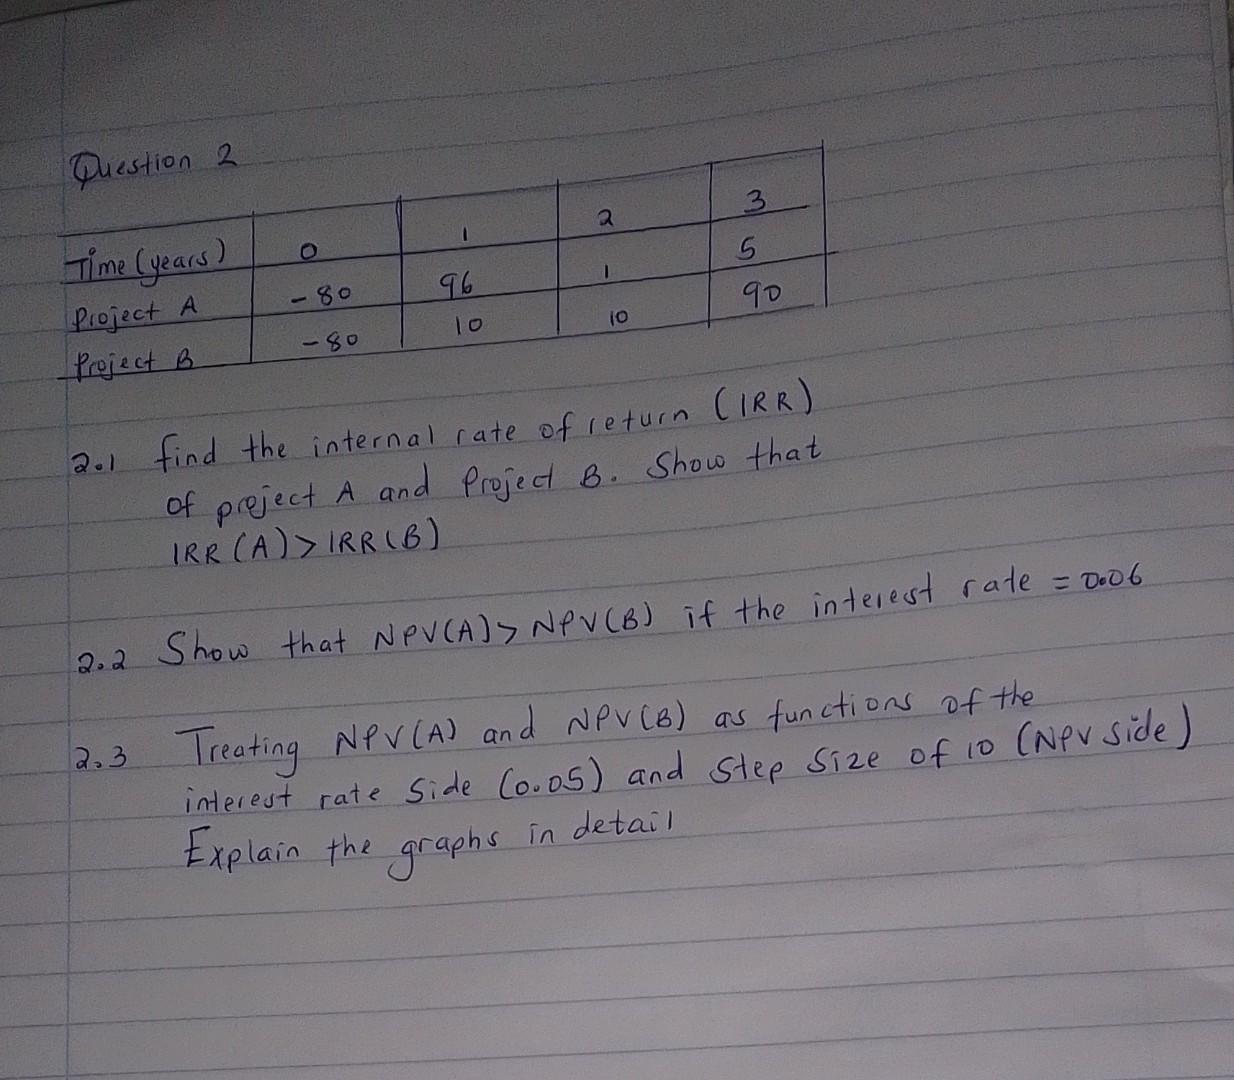 Question 2
Time (years) 0 1 2 3
Project A -80 96 1 5
Project B -80 10 10 90
2.1 find the internal rate of return (IRR)
of project A and Project B. Show that
IRR (A) > IRR (B)
2.2 Show that NPV(A) > NPV(B) if the interest rate = 0.06
2.3 Treating NPV(A) and NPV(B) as functions of the
interest rate Side (0.05) and Step Size of 10 (NPV side)
Explain the graphs in detail